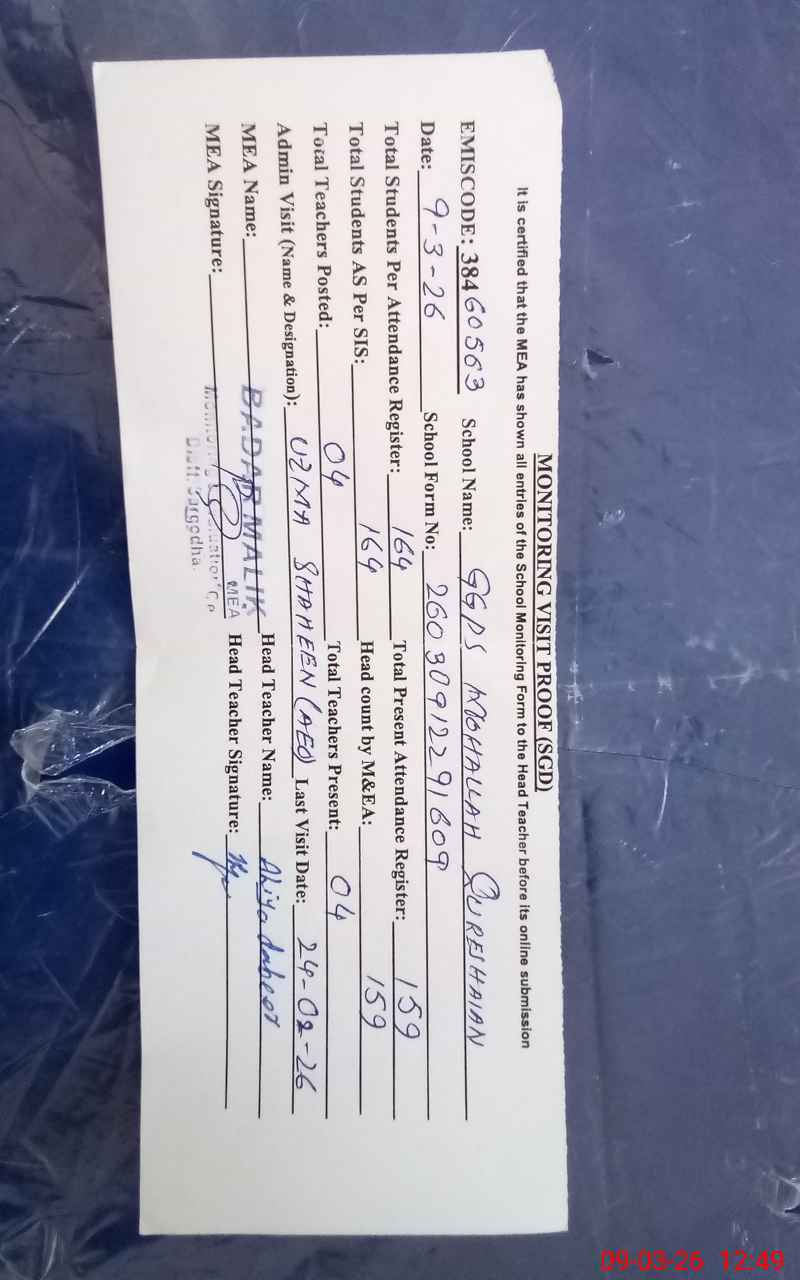 MONITORING VISIT PROOF (SGD)
It is certified that the MEA has shown all entries of the School Monitoring Form to the Head Teacher before its online submission
EMISCODE: 38460563 School Name: GGPS MOHALLAH QURESHAIAN
Date: 9-3-26 School Form No: 26030912291609
Total Students Per Attendance Register: 164 Total Present Attendance Register: 159
Total Students AS Per SIS: 164 Head count by M&EA: 159
Total Teachers Posted: 04 Total Teachers Present: 04
Admin Visit (Name & Designation): UZMA SHAHEEN (AEO) Last Visit Date: 24-02-26
MEA Name: BADAR MALIK Head Teacher Name:
MEA Signature: MEA Head Teacher Signature:
Distt. Sargodha.
09-03-26 12:49